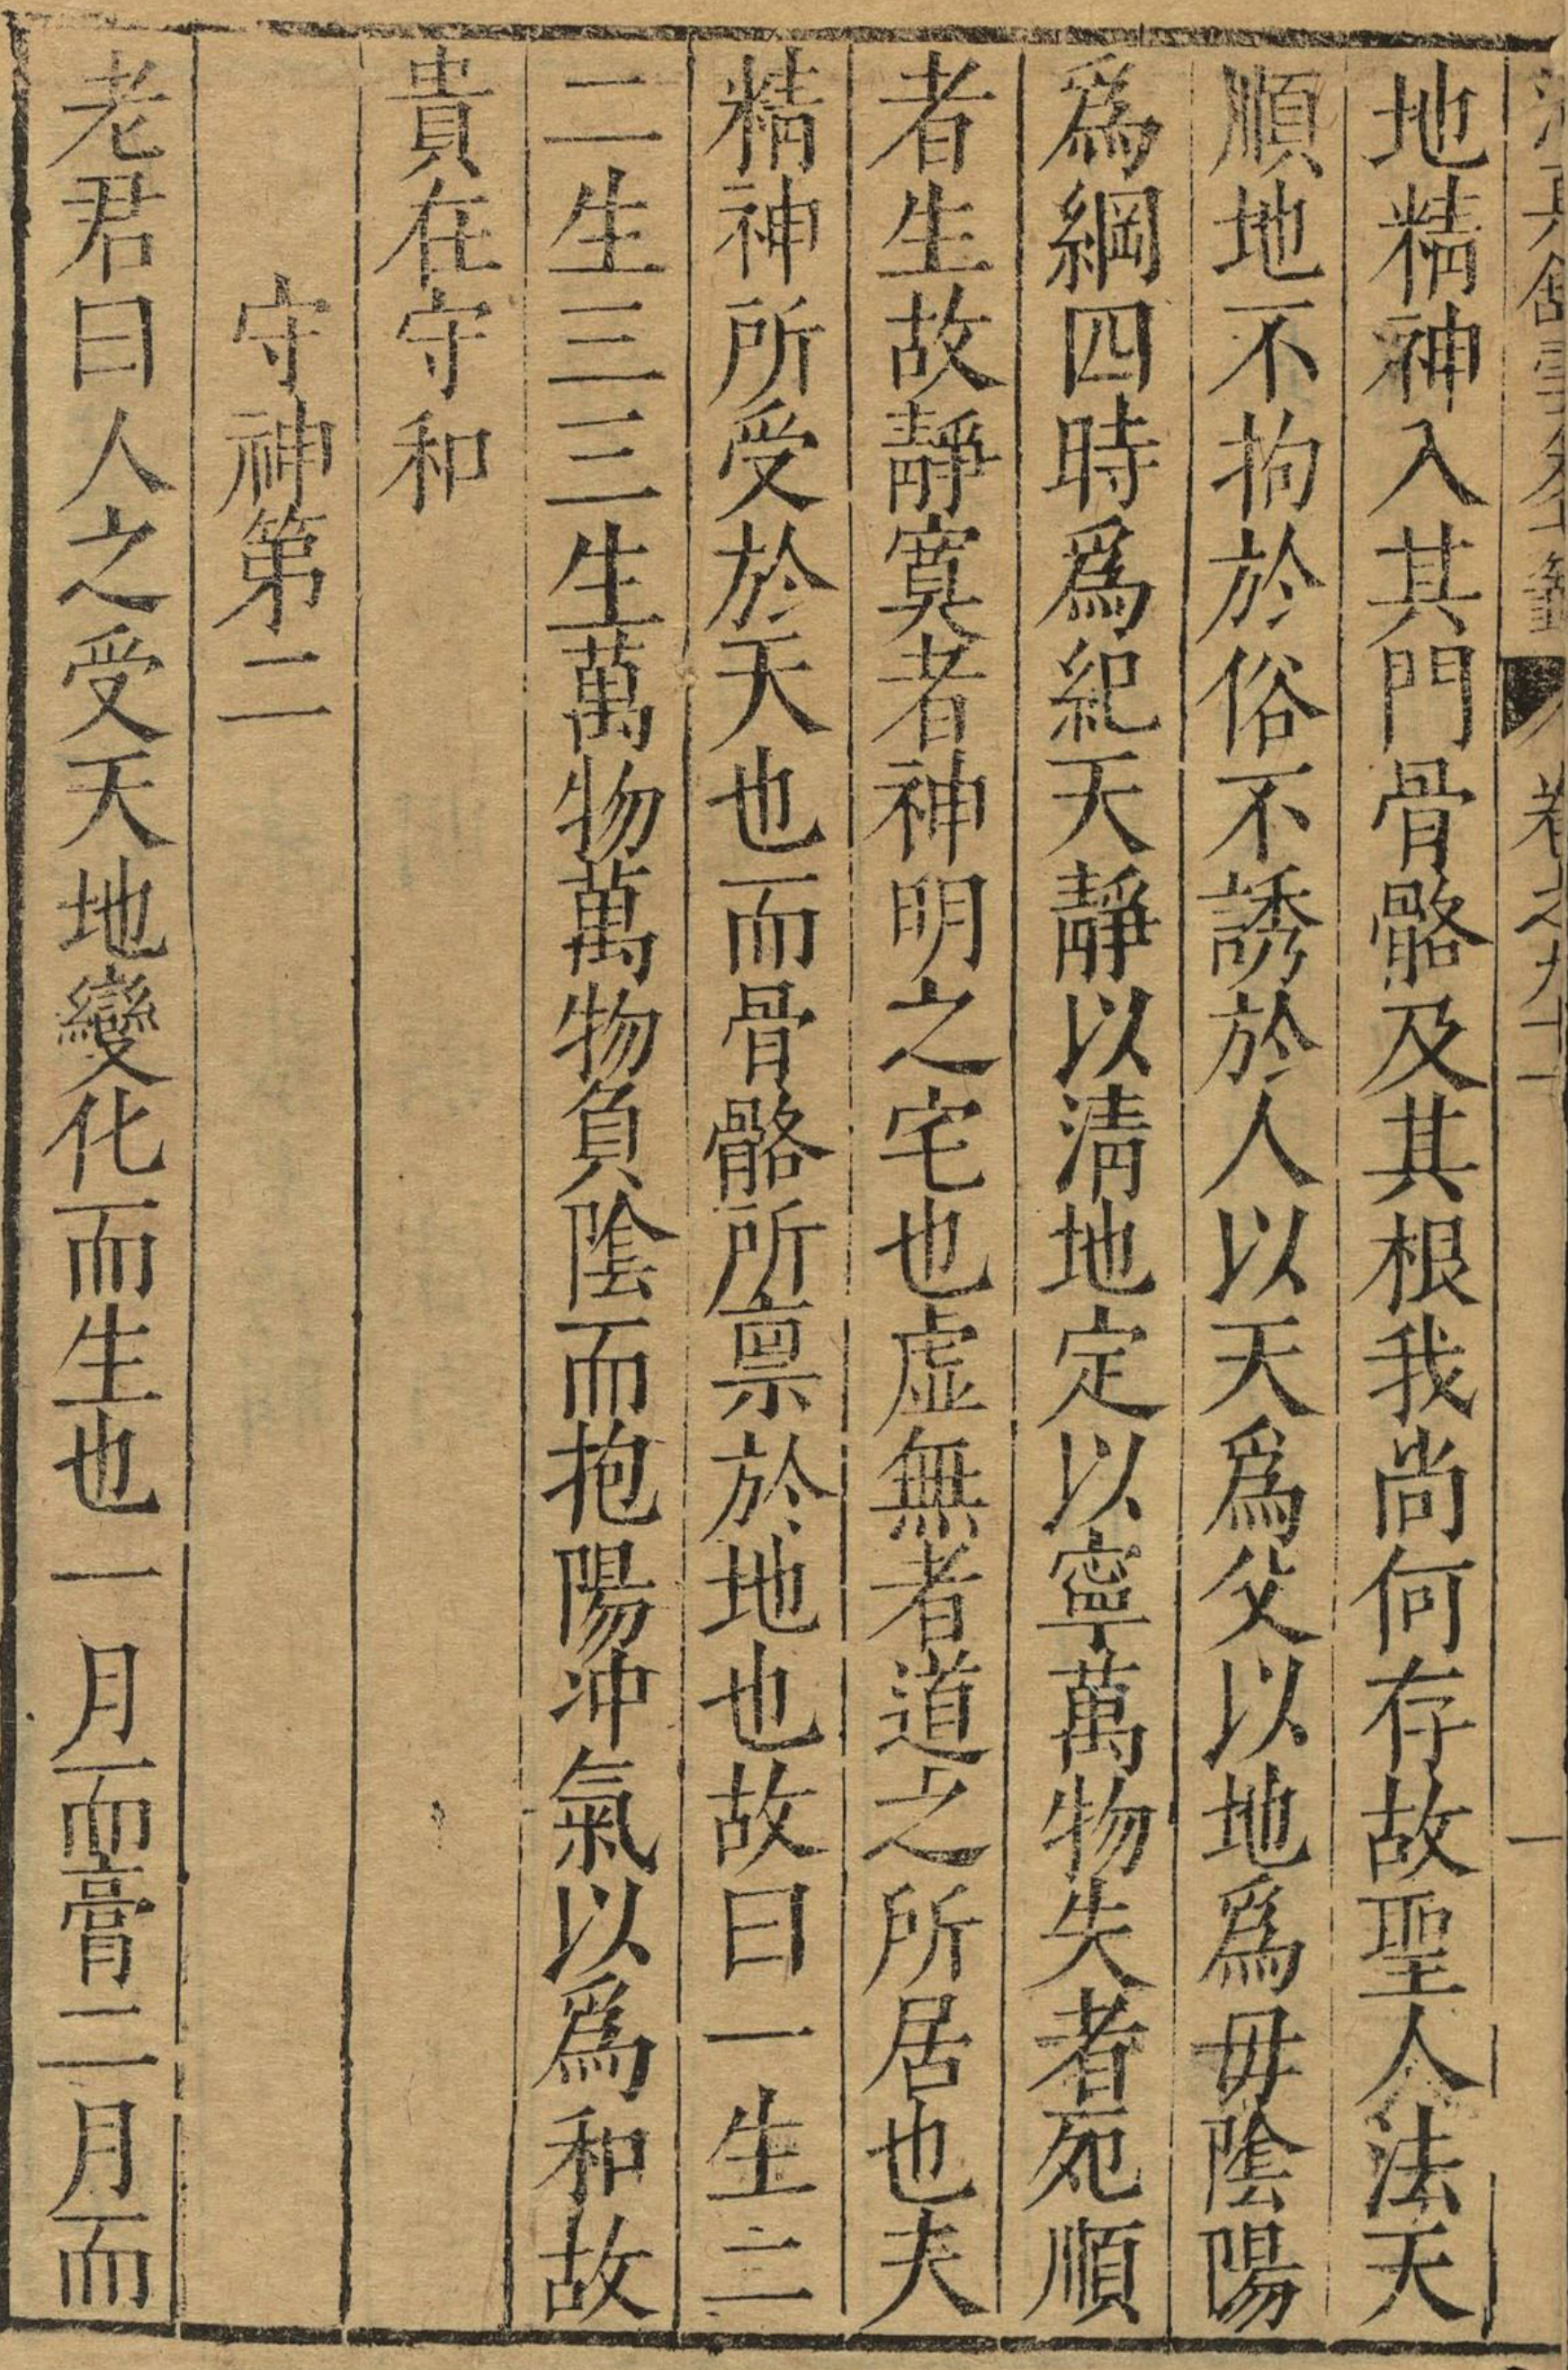 清真館雲笈七籤 卷之九十一 一
地精神入其門骨骼及其根我尚何存故聖人法天
順地不拘於俗不誘於人以天爲父以地爲毋陰陽
爲綱四時爲紀天靜以淸地定以寧萬物失者死順
者生故靜寞者神明之宅也虛無者道之所居也夫
精神所受於天也而骨骼所禀於地也故曰一生二
二生三三生萬物萬物負陰而抱陽冲氣以爲和故
貴在守和
守神第二
老君曰人之受天地變化而生也一月而膏二月而